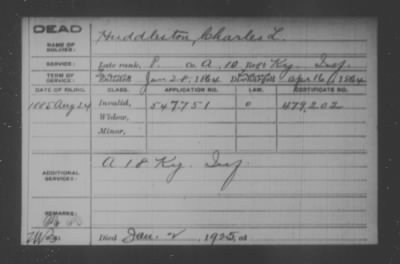 DEAD
NAME OF SOLDIER: Huddleston, Charles L.
SERVICE: Late rank, P. Co. A, 10 Reg't Ky. Inf.
TERM OF SERVICE: Enlisted Jan 28, 1864 Discharged Apr 16, 1864
DATE OF FILING. CLASS. APPLICATION NO. LAW. CERTIFICATE NO.
1885 Aug 24 Invalid, 547751 0 479,202
Widow,
Minor,
ADDITIONAL SERVICES: A 18 Ky. Inf.
REMARKS:
Died Jan. 2, 1925, at